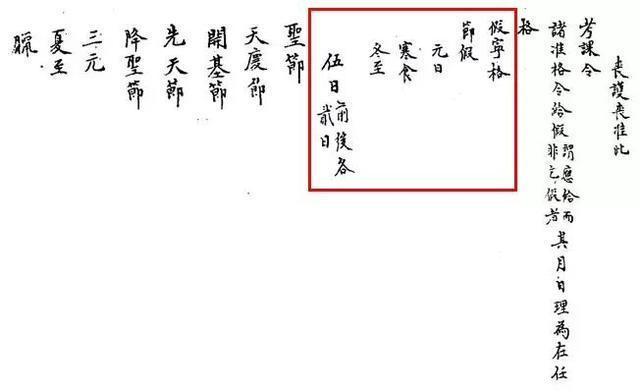 喪護喪准此
考課令
諸准格令給假謂應給而非乞假者其月日理為在任
格
假寧格
節假
元日
寒食
冬至
伍日前後各貳日
聖節
天慶節
開基節
先天節
降聖節
三元
夏至
臘